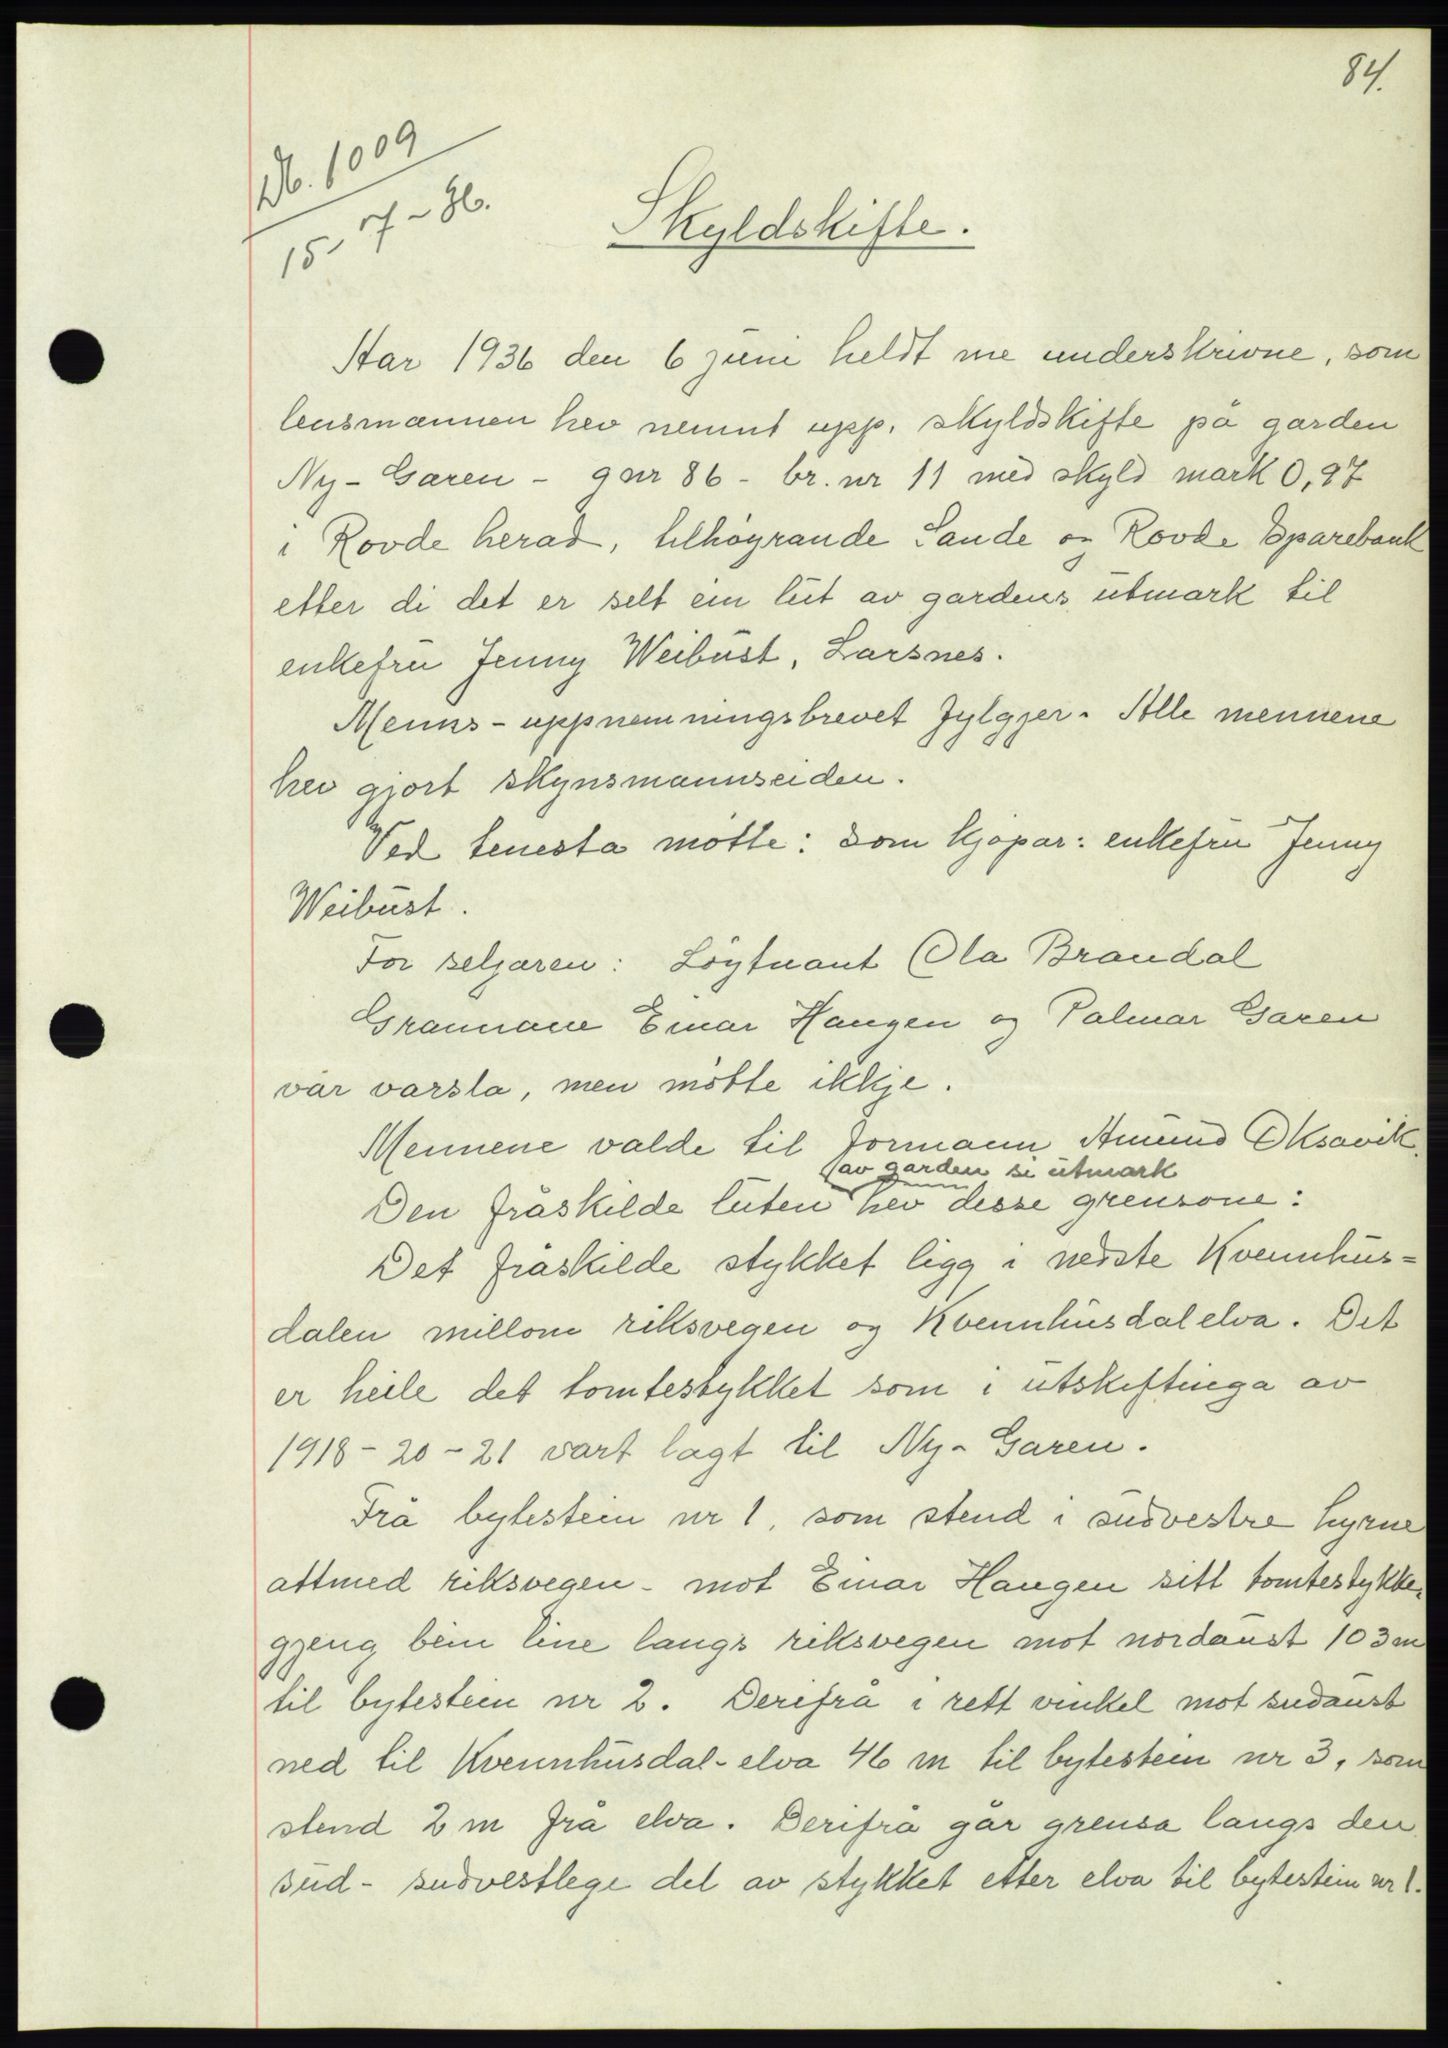 84.
Db. 1009
15-7-36.
Skyldskifte.
Aar 1936 den 6 juni heldt me underskrivne, som
lensmannen hev nemnt upp, skyldskifte på garden
Ny-Garen - gnr 86 - br. nr 11 med skyld mark 0,97
i Rovde herad, tilhøyrande Sande og Rovde Sparebank
etter di det er selt ein lut av gardens utmark til
enkefru Jenny Weibust, Larsnes.
Menns-uppnemningsbrevet fylgjer. Alle mennene
hev gjort skynsmannseiden.
Ved tenesta møtte: som kjøpar: enkefru Jenny
Weibust.
For seljaren: Løytnant Ola Brandal
Grannane Einar Haugen og Palmar Garen
var varsla, men møtte ikkje.
Mennene valde til formann Amund Oksavik.
av garden si utmark
Den fråskilde luten hev desse grensone:
Det fråskilde stykket ligg i nedste Kvennhus-
dalen millom riksvegen og Kvennhusdalelva. Det
er heile det tomtestykket som i utskiftinga av
1918-20-21 vart lagt til Ny-Garen.
Frå bytestein nr 1, som stend i sudvestre hyrne
attmed riksvegen - mot Einar Haugen sitt tomtestykke,
gjeng bein line langs riksvegen mot nordaust 103 m
til bytestein nr 2. Derifrå i rett vinkel mot sudaust
ned til Kvennhusdal-elva 46 m til bytestein nr 3, som
stend 2 m frå elva. Derifrå går grensa langs den
sud- sudvestlege del av stykket etter elva til bytestein nr 1.